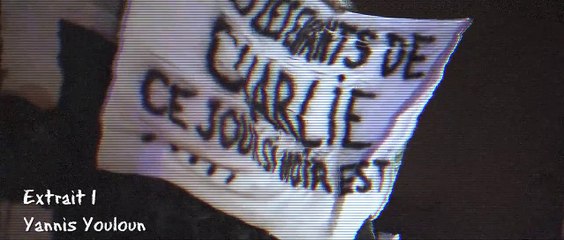 LES ENFANTS DE
CHARLIE
CE JOUR SI NOIR EST
Extrait 1
Yannis Youloun